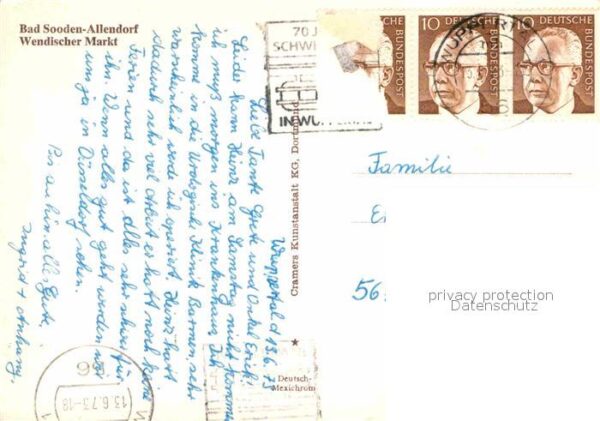 Bad Sooden-Allendorf
Wendischer Markt
Wuppertal d 13.6.73
Liebe Tante Grete und Onkel Erich!
Leider kann Heinz am Samstag nicht kommen
ich muß morgen ins Krankenhaus. Ich
komme in die Urologische Klinik Barmen, sehr
warscheinlich werde ich operiert. Heinz hat
dadurch sehr viel Arbeit er hat noch keine
Ferien und da ist alles sehr schwer für
ihn. Wenn alles gut geht werden wir
uns ja in Düsseldorf sehen.
Bis dahin alles Gute,
Ingrid +
Cramers Kunstanstalt KG, Dortmund
Deutsch-
Mexichrom
70 J
SCHW
IN WUPPERTAL
10 DEUTSCHE
BUNDESPOST
10 DEUTSCHE
BUNDESPOST
BUNDESPOST
WUPPERTAL
13.6.73-18
Familie
56
privacy protection
Datenschutz